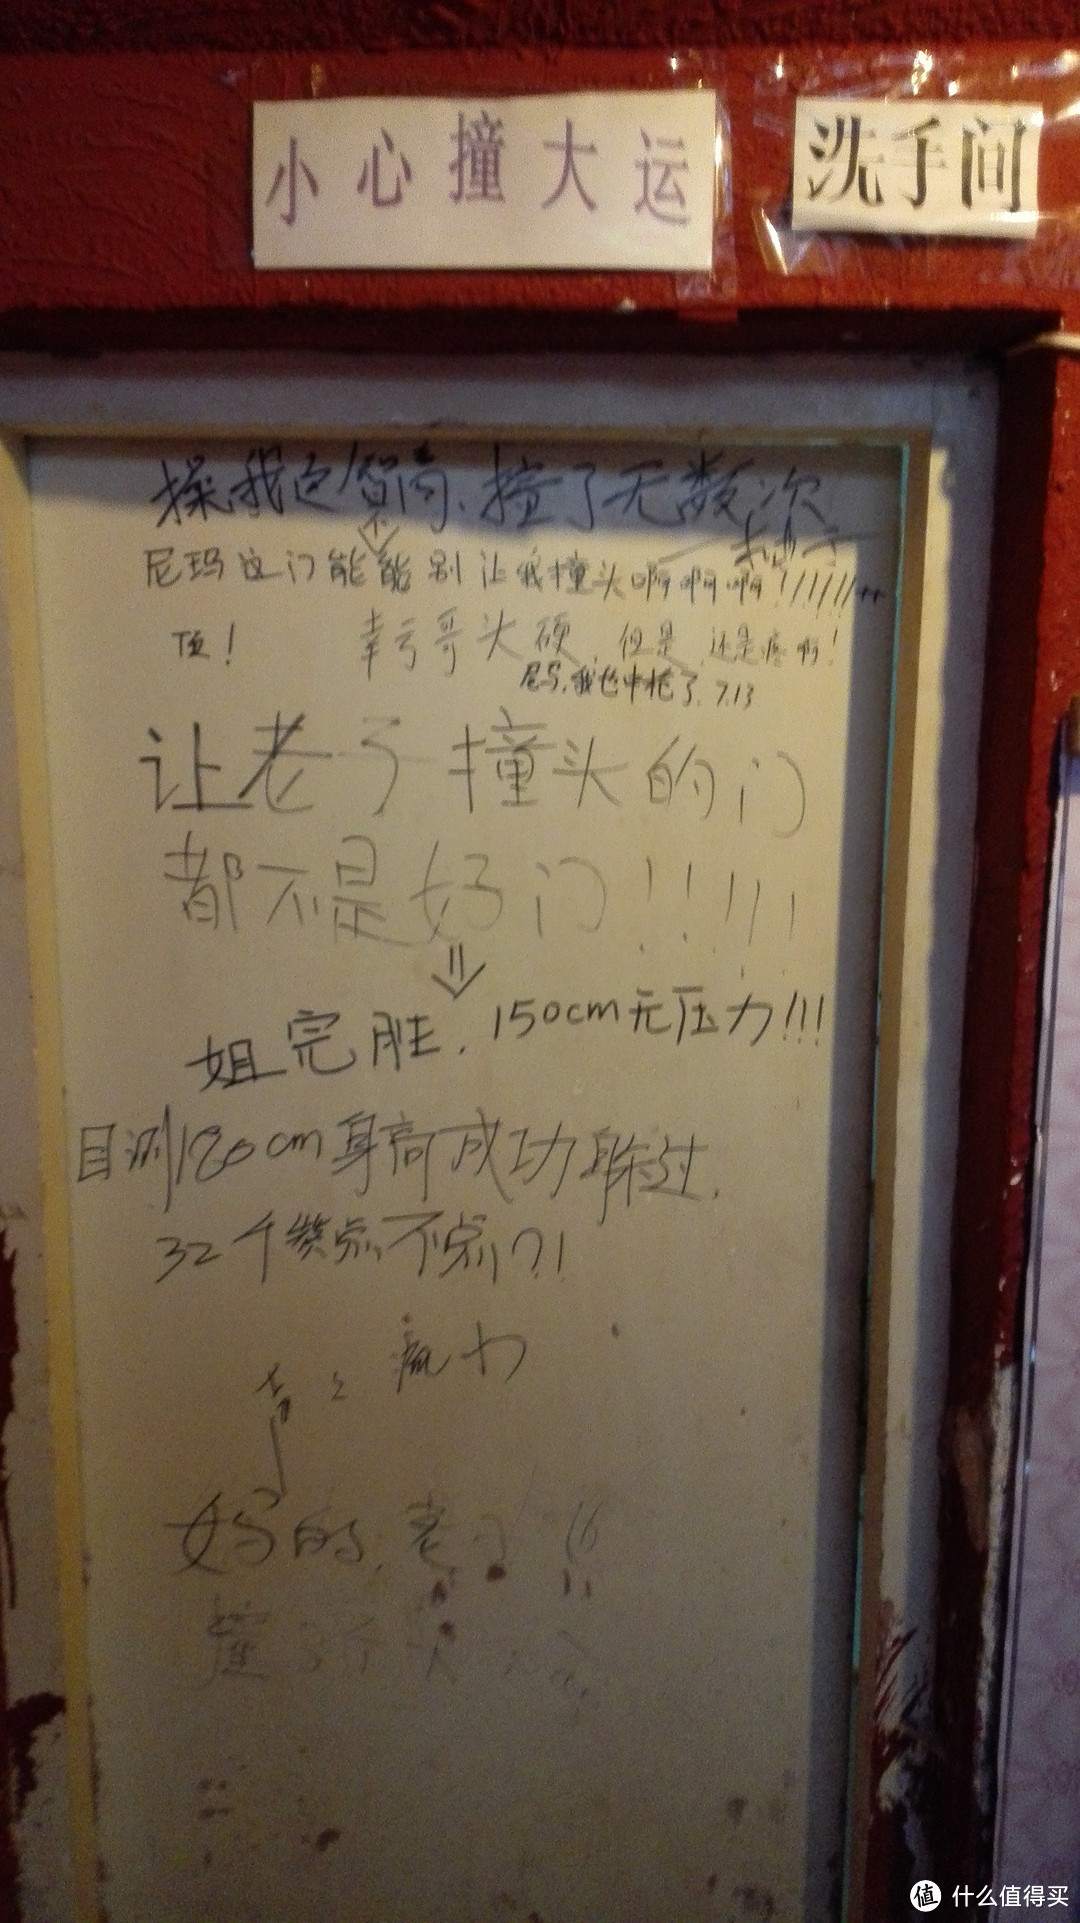 小心撞大运
洗手间
操,我这智商,撞了无数次
尼玛这门能能别让我撞头啊啊啊!!!!!!!
顶!
幸亏哥头硬,但是,还是疼啊!
尼玛,我也中枪了.7.13
让老子撞头的门
都不是好门!!!!!
姐完胜.150cm无压力!!!
目测180cm身高成功躲过.
32个赞点不点?!
妈的,老子
撞了 头
什么值得买